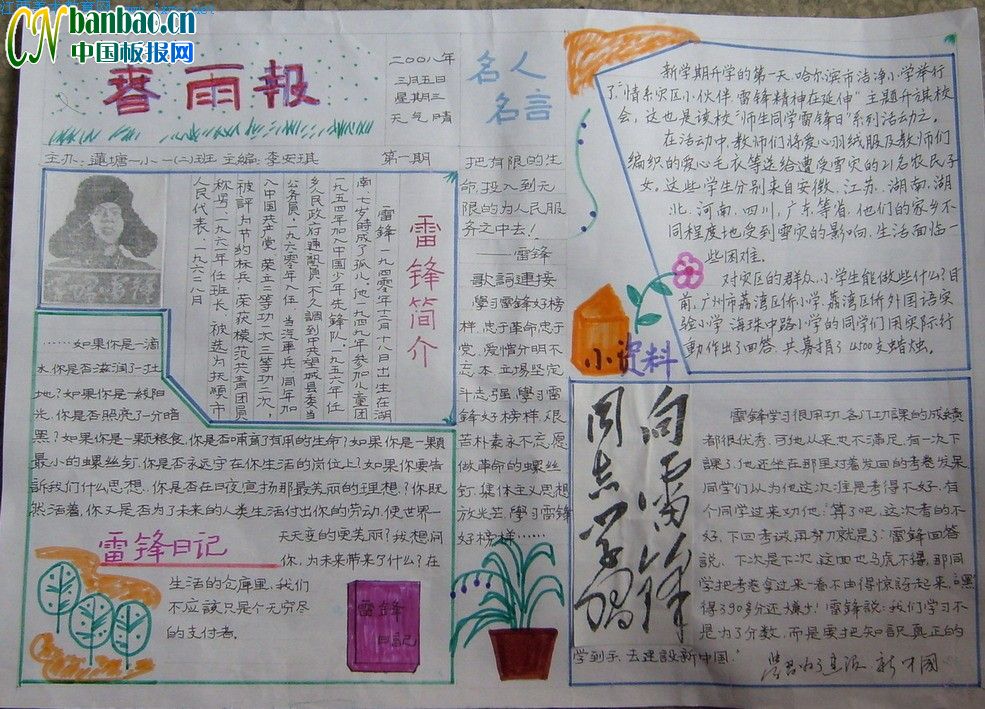 CN banbao.cn
中国板报网
春雨報
二00八年
三月五日
星期三
天气晴
主办:蓮塘一小一(二)班 主編:李安琪
第一期
名人
名言
把有限的生
命,投入到无
限的为人民服
务之中去!
——雷锋
歌詞連接
學习雷锋好榜
样,忠于革命忠于
党,爱憎分明不
忘本,立場坚定
斗志强,學习雷
锋好榜样,艰
苦朴素永不忘,愿
做革命的螺丝
钉,集体主义思想
放光芒,學习雷锋
好榜样……
雷锋简介
雷锋,一九四0年十二月十八日出生在湖
南,七岁時成了孤儿,他一九四九年参加儿童团
一九五四年加入中国少年先锋队,一九五六年任
乡人民政府通訊員,不久調到中共望城县委当
公务員,一九六0年入伍,当汽車兵,同年加
入中国共产党,荣立二等功一次三等功二次,
被評为节约标兵,荣获模范共青团員
称号,一九六一年任班长,被选为抚順市
人民代表,一九六二八月
……如果你是一滴
水,你是否滋润了一寸土
地?如果你是一線阳
光,你是否照亮了一分暗
黑?如果你是一顆粮食,你是否哺育了有用的生命?如果你是一顆
最小的螺丝钉,你是否永远守在你生活的岗位上?如果你要告
訴我们什么思想,你是否在日夜宣扬那最美丽的理想?你既
然活着,你又是否为了未来的人类生活付出你的劳动,使世界一
天天变的更美丽?我想问
你,为未来带来了什么?在
生活的仓庫里,我们
不应該只是个无穷尽
的支付者。
雷锋日记
雷锋
日記
新学期开学的第一天,哈尔滨市洁净小学举行
了“情系灾区小伙伴 雷锋精神在延伸”主题升旗校
会,这也是该校“师生同学雷锋日”系列活动之一。
在活动中,教师们将爱心羽绒服及教师们
编织的爱心毛衣等送给遭受雪灾的21名农民子
女,这些学生分别来自安徽、江苏、湖南、湖
北、河南、四川、广东等省,他们的家乡不
同程度地受到雪灾的影响,生活面临一
些困难。
对灾区的群众,小学生能做些什么?目
前,广州市荔湾区侨小学、荔湾区侨外国语实
验小学、海珠中路小学的同学们用实际行
動作出了回答,共募捐了4500支蜡烛。
小资料
向雷锋
同志学習
雷锋学习很用功,各门功課的成績
都很优秀,可他从来也不满足,有一次下
課了,他还坐在那里对着发回的考卷发呆
同学们以为他这次准是考得不好,有
个同学过来劝他:算了吧,这次考的不
好,下回考試再努力就是了,雷锋回答
説,下次是下次,这回也马虎不得,那同
学把考卷拿过来一看不由得惊訝起来,“嘿
得了90多分还嫌少!雷锋說:我们学习不
是为了分数,而是要把知識真正的
学到手,去建設新中国。”